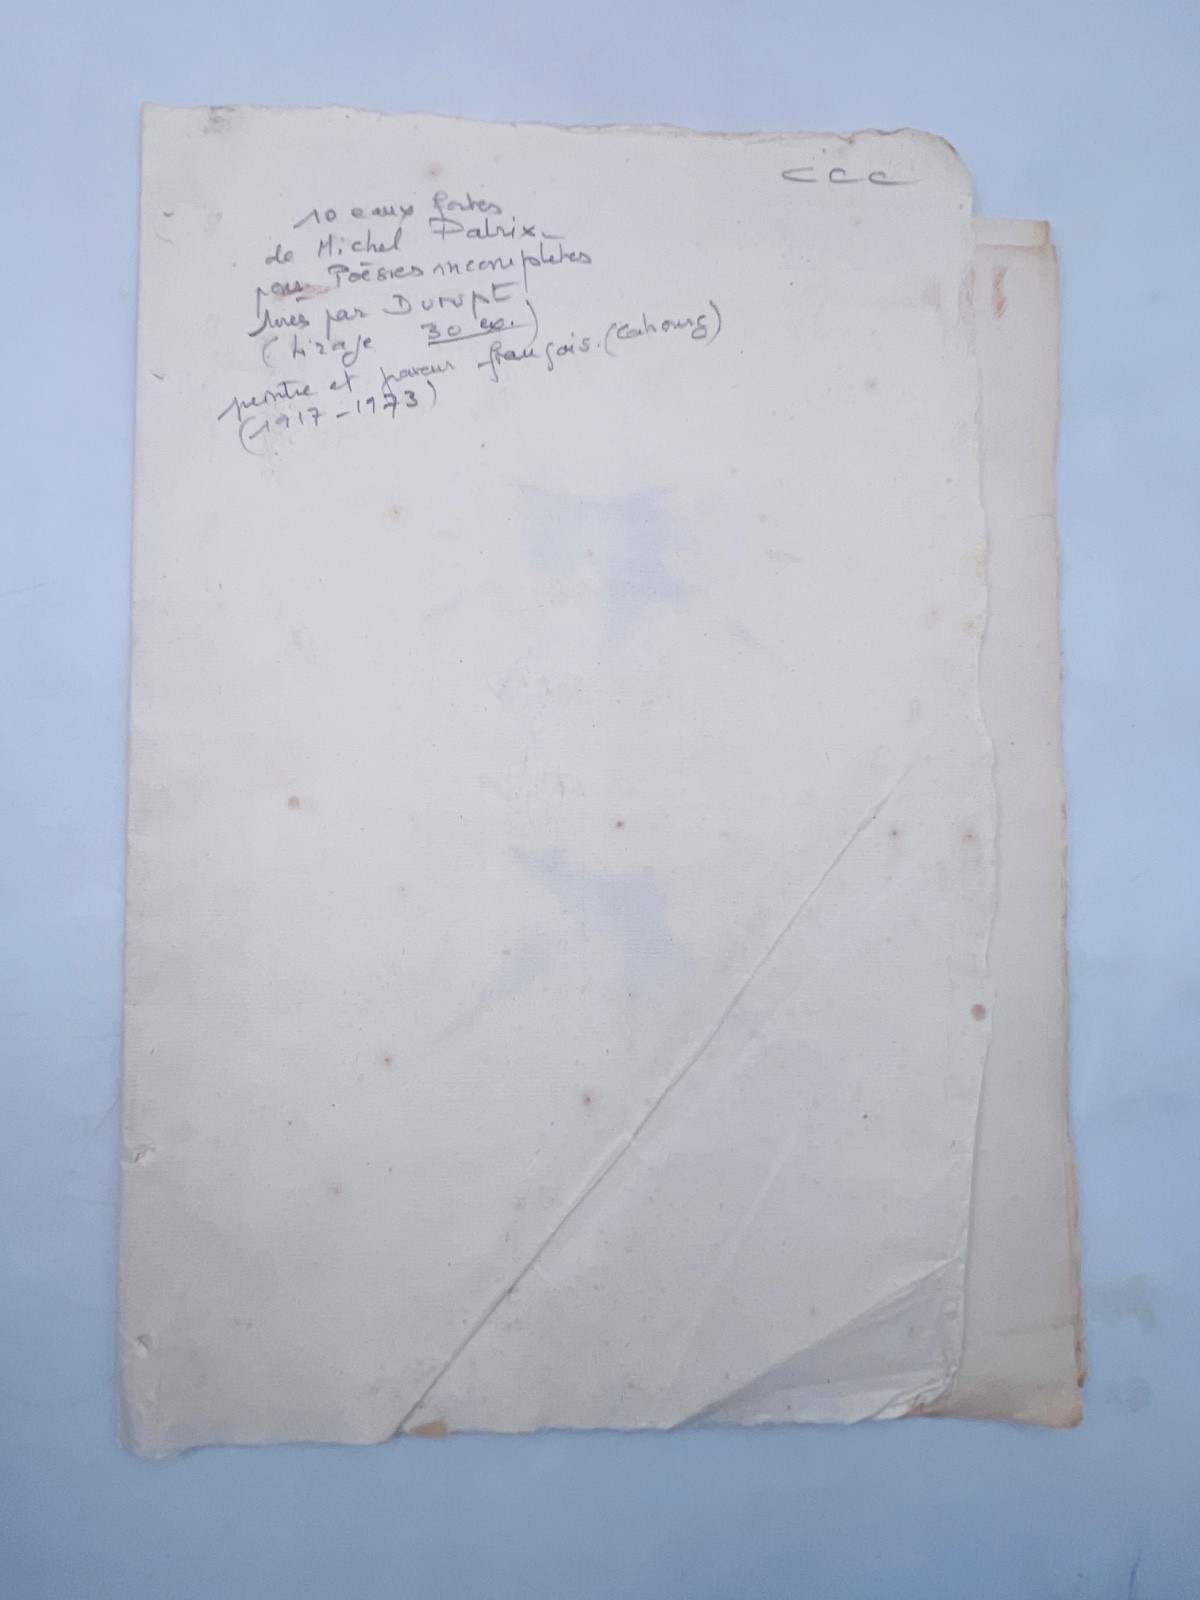 ccc
10 eaux fortes
de Michel Patrix_
pour Poèsies incomplètes
tirés par Durupt
(tirage 30 ex.)
peintre et graveur français. (Cabourg)
(1917-1973)